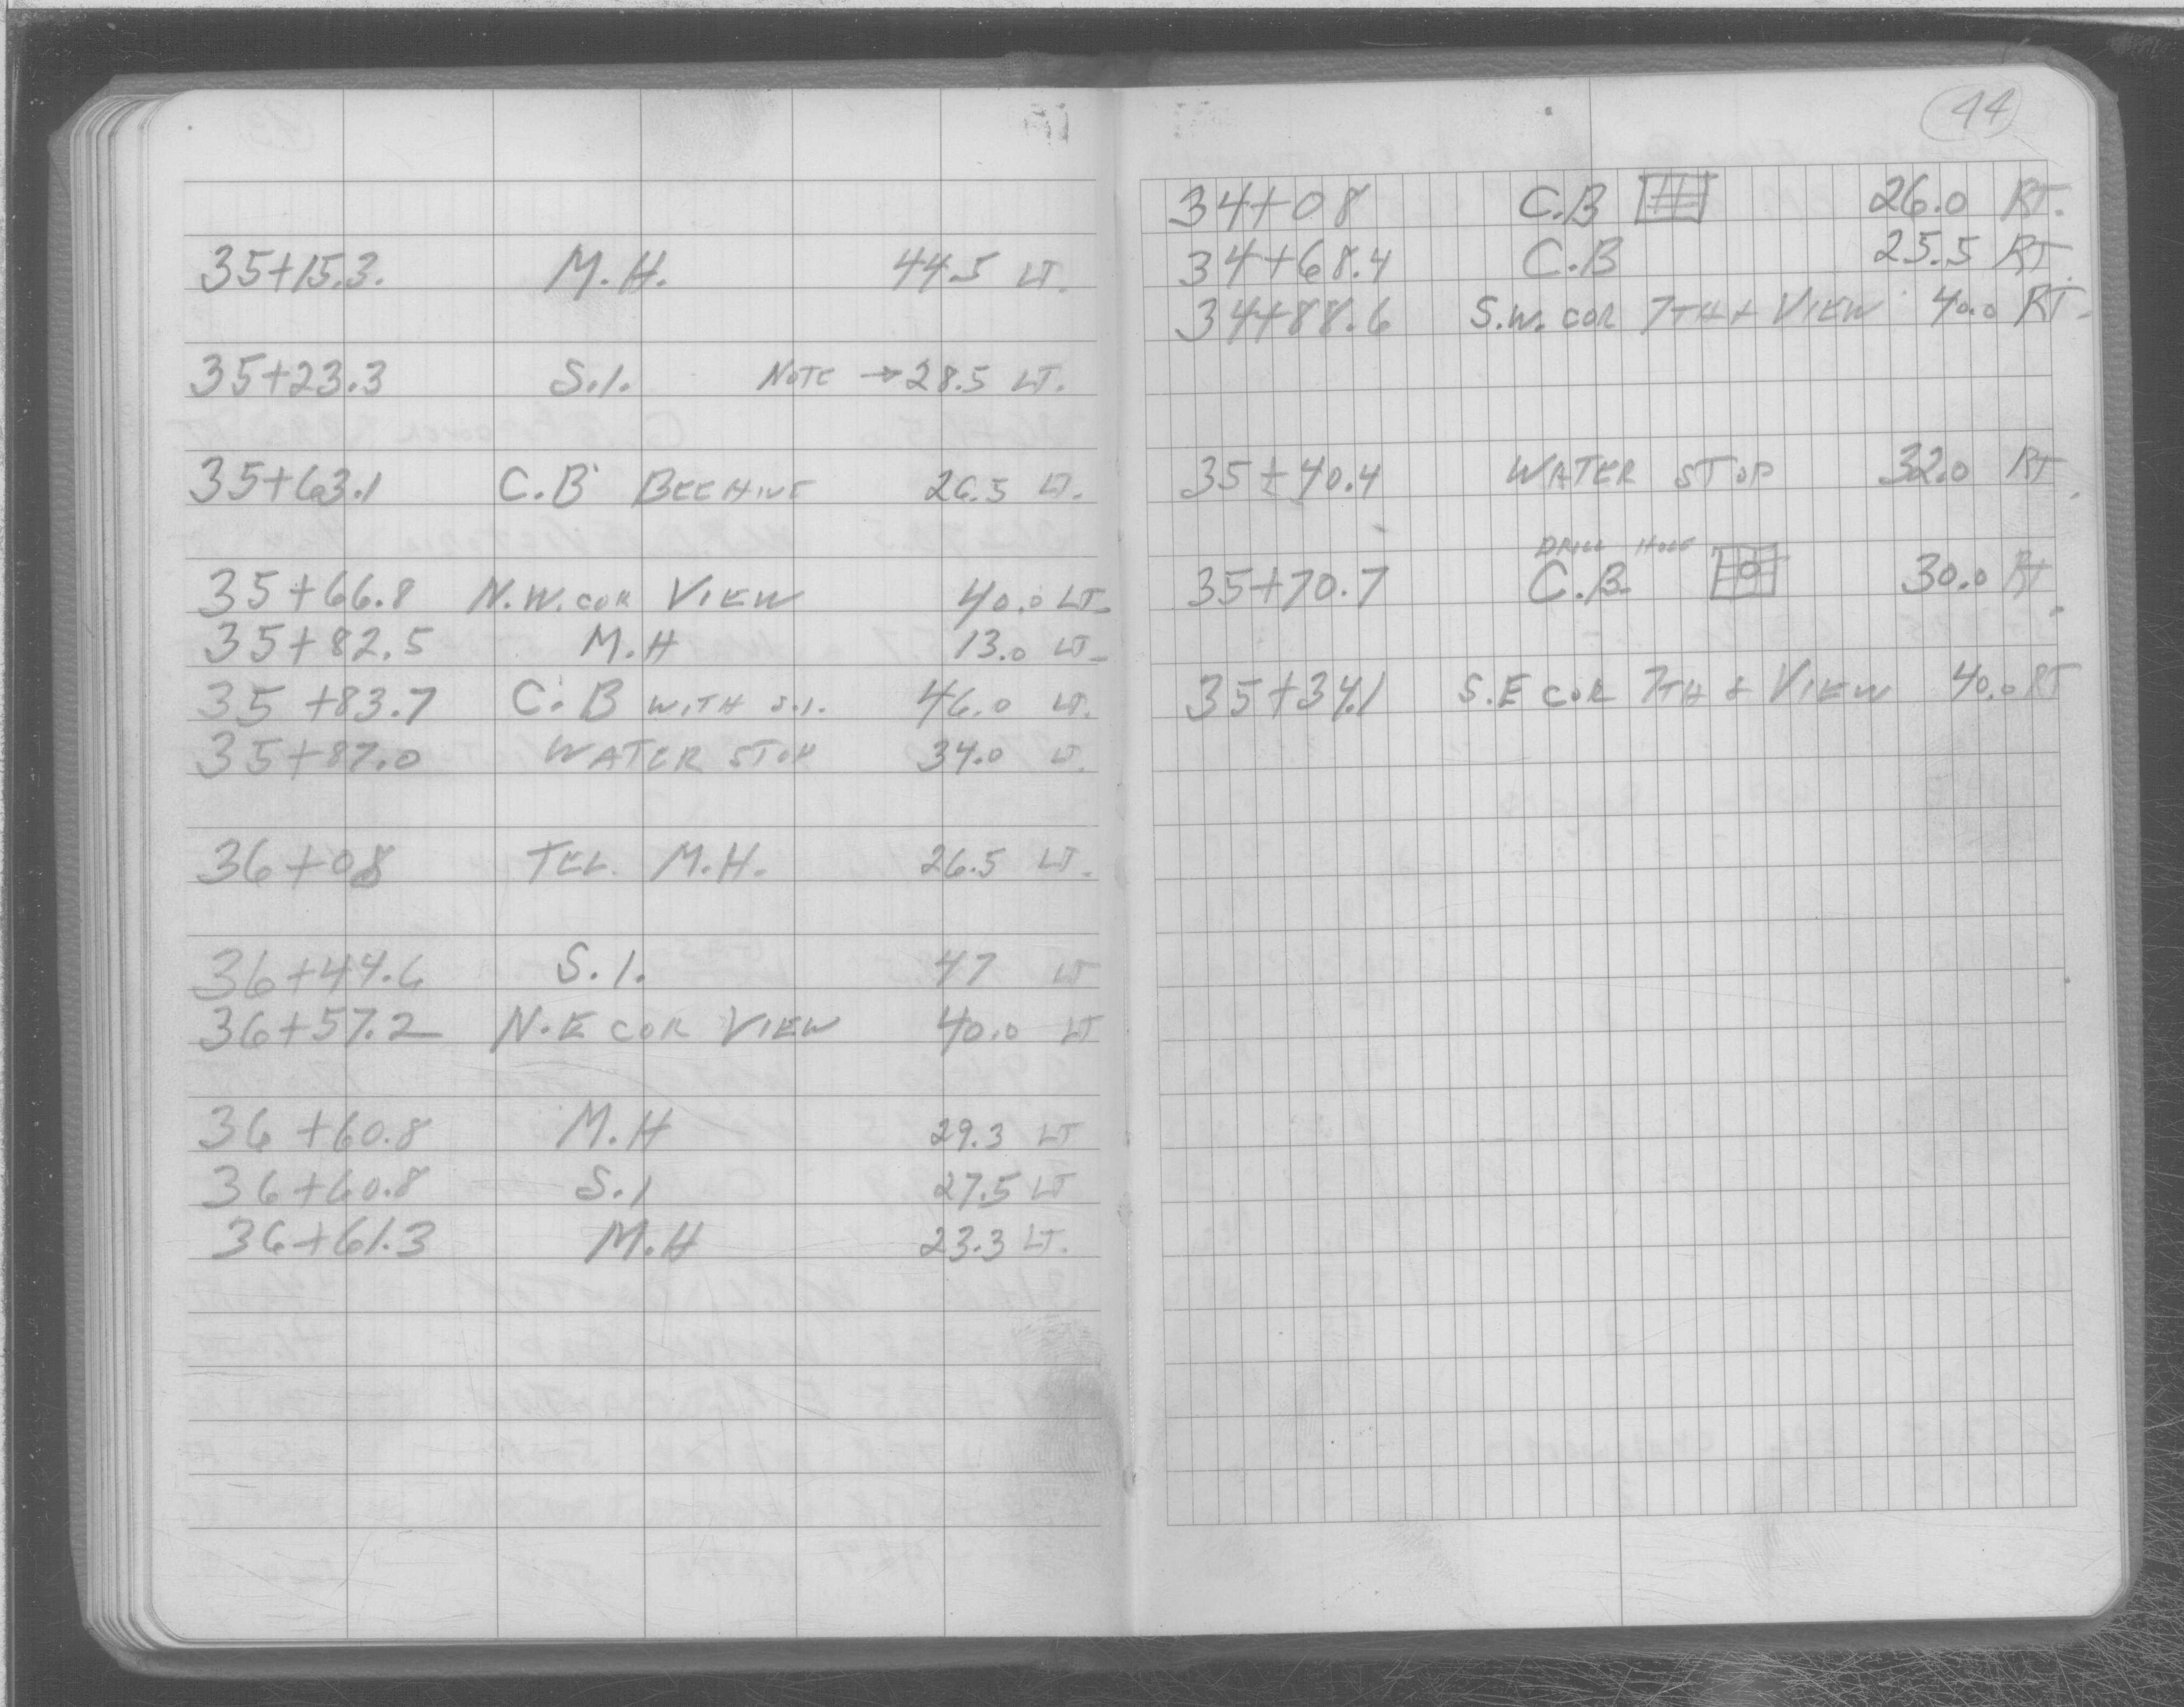 35+15.3. M.H. 44.5 LT.
35+23.3 S.I. NOTE → 28.5 LT.
35+63.1 C.B BEEHIVE 26.5 LT.
35+66.8 N.W. COR VIEW 40.0 LT.
35+82.5 M.H 13.0 LT.
35+83.7 C.B WITH S.I. 46.0 LT.
35+87.0 WATER STOP 34.0 LT.
36+08 TEL. M.H. 26.5 LT.
36+44.6 S.I. 47 LT
36+57.2 N.E COR VIEW 40.0 LT
36+60.8 M.H 29.3 LT
36+60.8 S.I 27.5 LT
36+61.3 M.H 23.3 LT.
44
34+08 C.B 26.0 RT.
34+68.4 C.B 25.5 RT.
34+88.6 S.W. COR 7TH + VIEW 40.0 RT.
35+40.4 WATER STOP 32.0 RT.
DRILL HOLE
35+70.7 C.B. 30.0 RT.
35+34.1 S.E COR 7TH & VIEW 40.0 RT